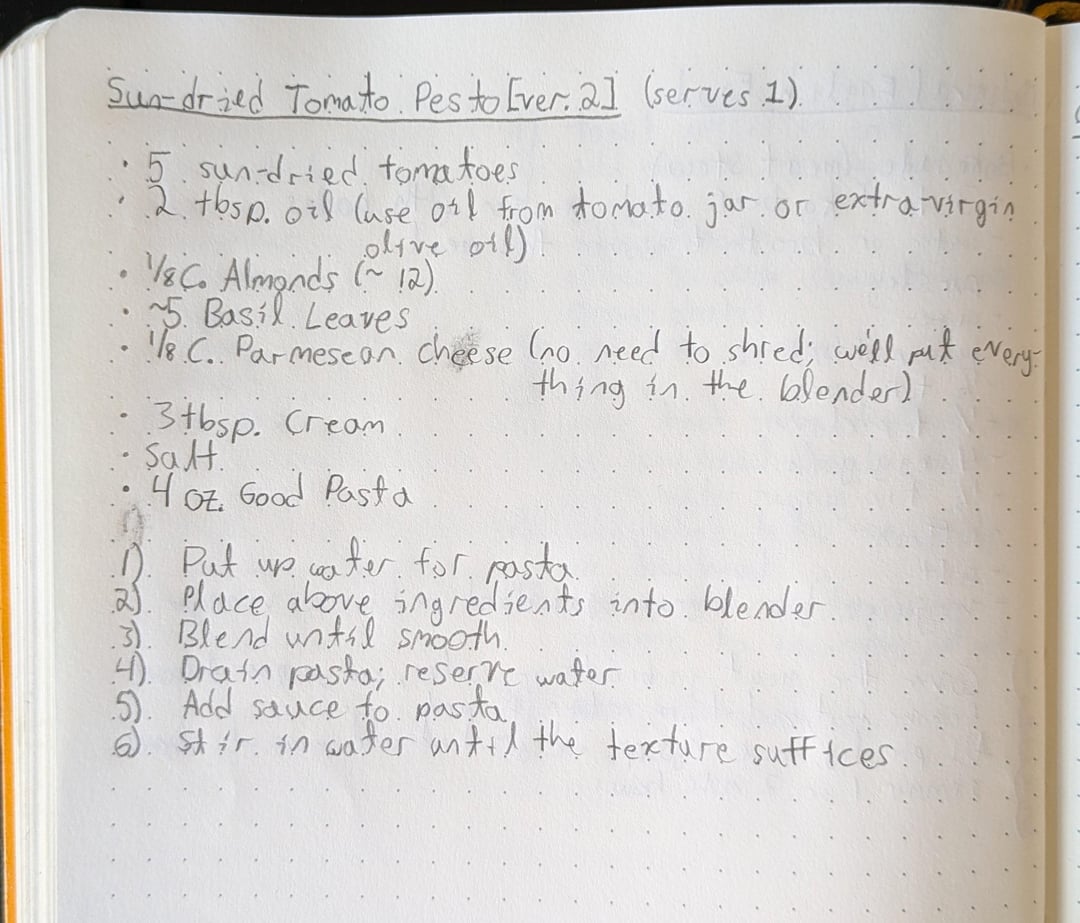 Sun-dried Tomato Pesto [ver. 2] (serves 1)
• 5 sun-dried tomatoes
• 2 tbsp. oil (use oil from tomato jar or extra-virgin
olive oil)
• 1/8 C. Almonds (~ 12)
• ~5 Basil Leaves
• 1/8 C. Parmesean cheese (no need to shred; we'll put every-
thing in the blender)
• 3 tbsp. Cream
• Salt
• 4 oz. Good Pasta
1) Put up water for pasta
2) Place above ingredients into blender
3) Blend until smooth
4) Drain pasta; reserve water
5) Add sauce to pasta
6) Stir in water until the texture suffices.